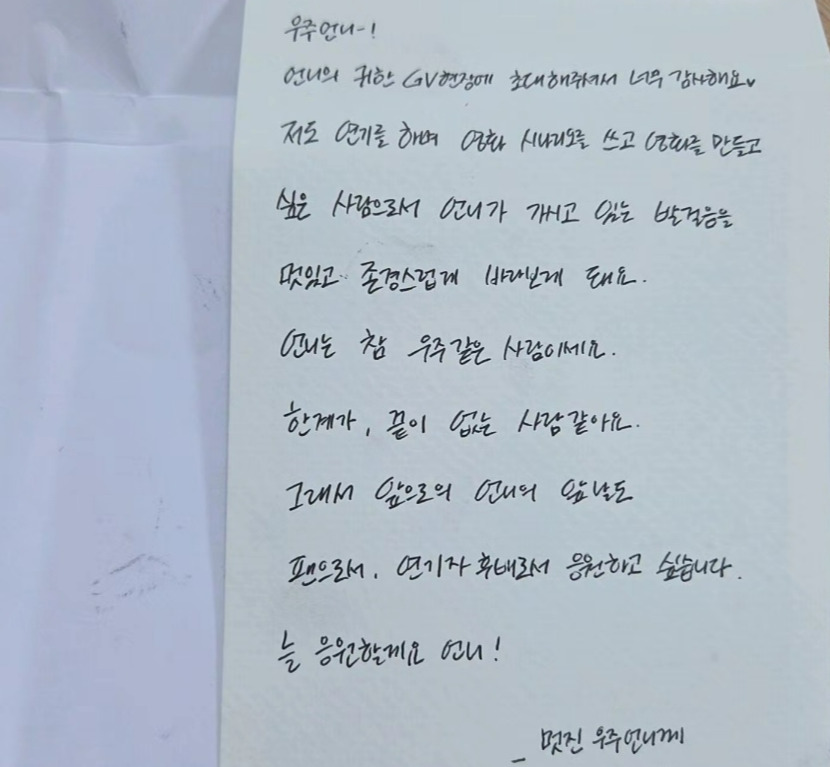 우주언니-!
언니의 귀한 GV현장에 초대해주셔서 너무 감사해요♥
저도 연기를 하며 영화 시나리오를 쓰고 영화를 만들고
싶은 사람으로서 언니가 개시고 있는 발걸음을
멋있고 존경스럽게 바라보게 돼요.
언니는 참 우주같은 사람이세요.
한계가, 끝이 없는 사람같아요.
그래서 앞으로의 언니의 앞날도
팬으로서, 연기자 후배로서 응원하고 싶습니다.
늘 응원할게요 언니!
_ 멋진 우주언니께